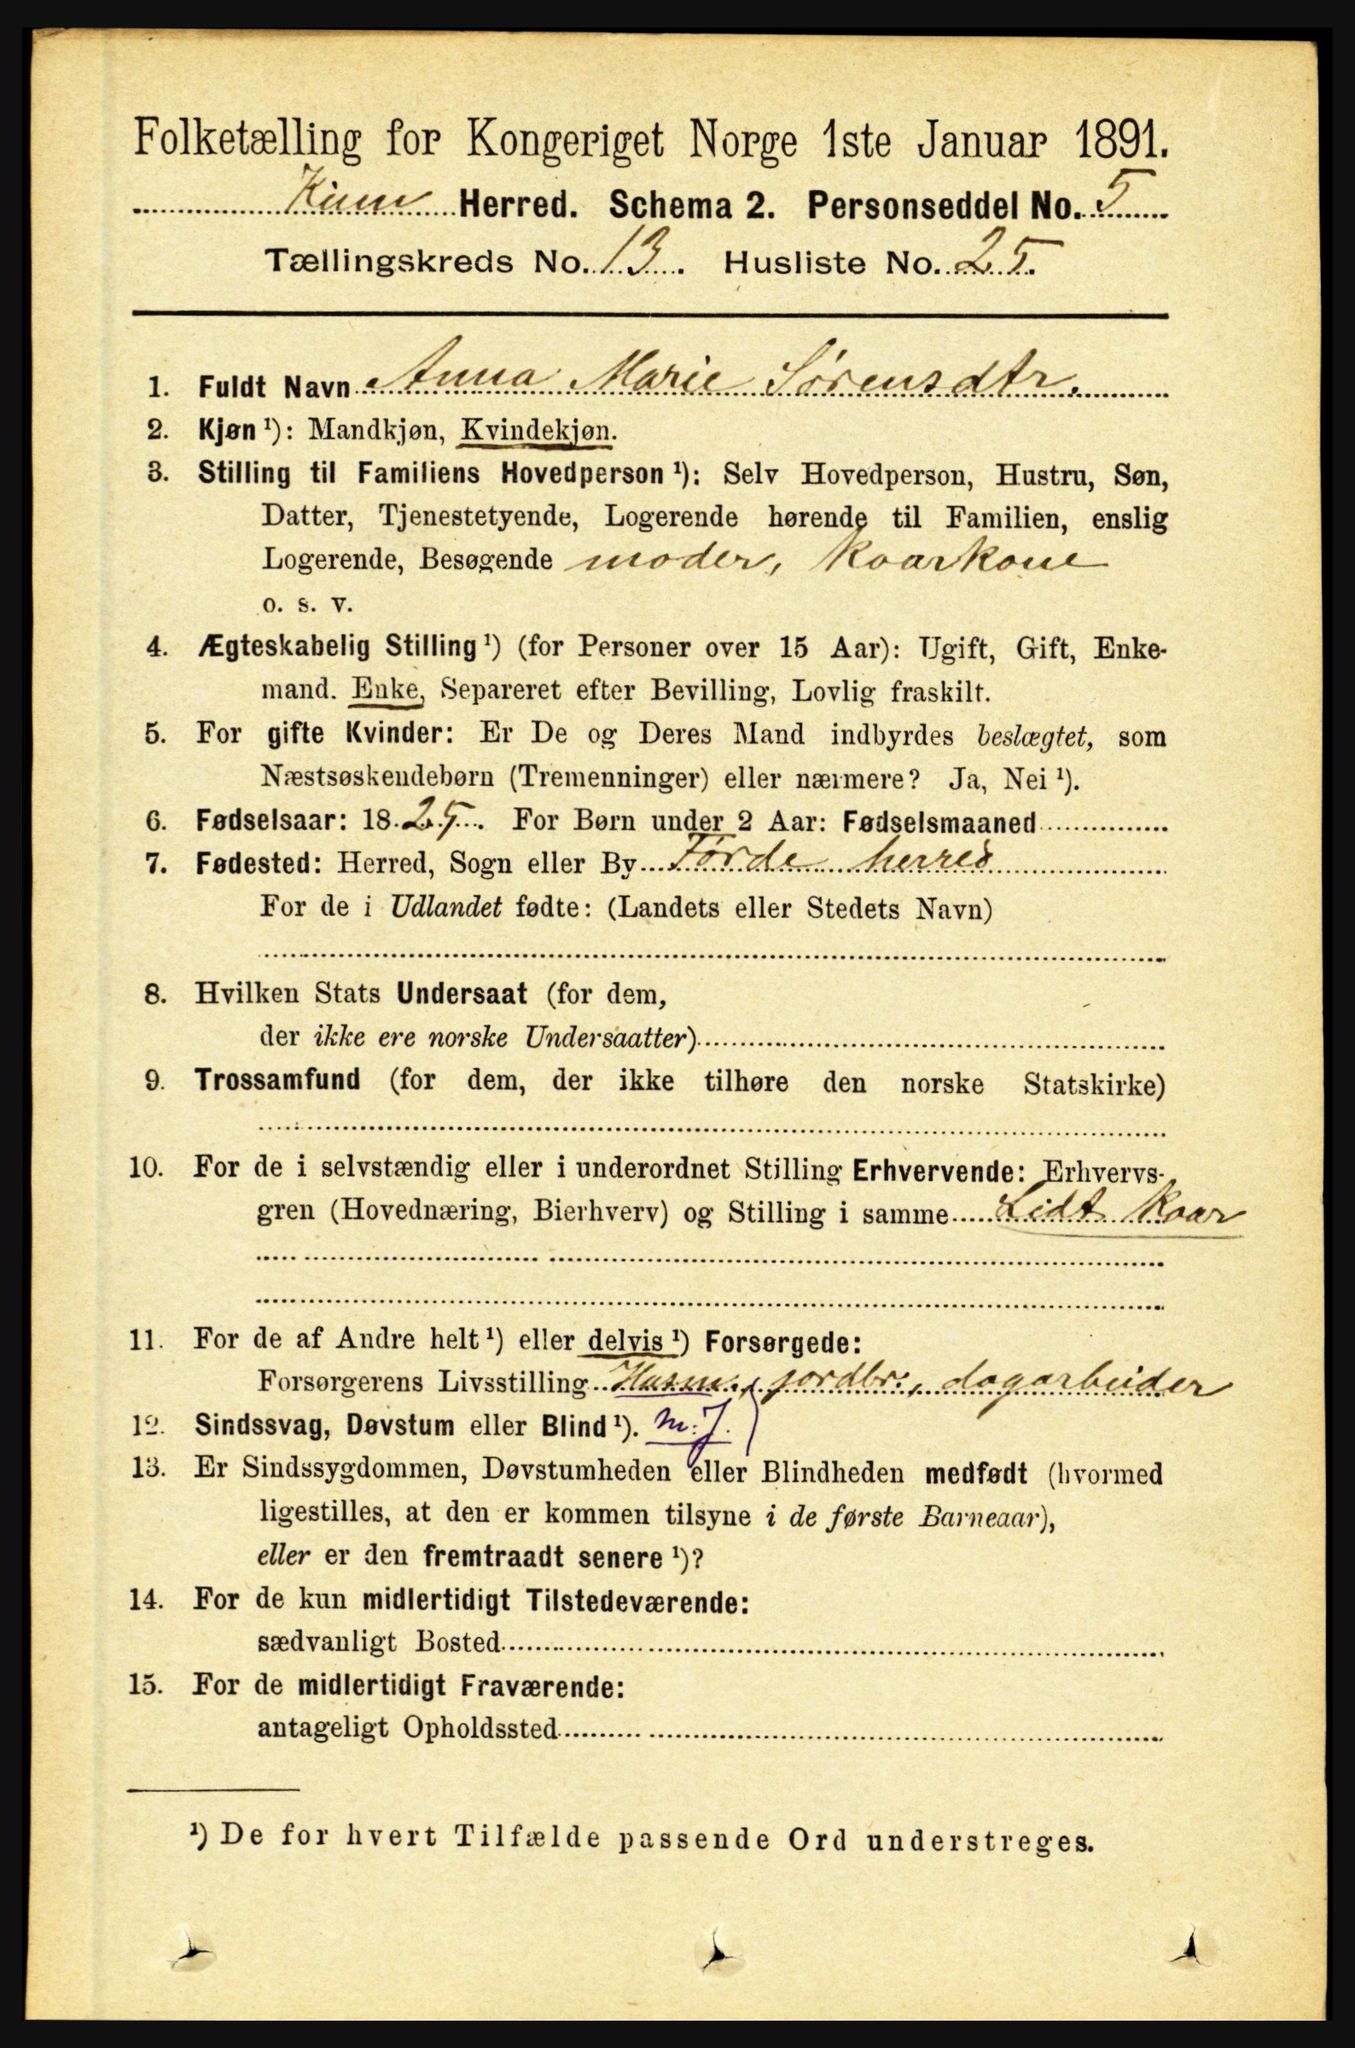 Folketælling for Kongeriget Norge 1ste Januar 1891.
Kinn Herred. Schema 2. Personseddel No. 5
Tællingskreds No. 13. Husliste No. 25.
1. Fuldt Navn Anna Marie Sørensdtr.
2. Kjøn ¹): Mandkjøn, Kvindekjøn.
3. Stilling til Familiens Hovedperson ¹): Selv Hovedperson, Hustru, Søn,
Datter, Tjenestetyende, Logerende hørende til Familien, enslig
Logerende, Besøgende moder, kaarkone
o. s. v.
4. Ægteskabelig Stilling ¹) (for Personer over 15 Aar): Ugift, Gift, Enke-
mand. Enke, Separeret efter Bevilling, Lovlig fraskilt.
5. For gifte Kvinder: Er De og Deres Mand indbyrdes beslægtet, som
Næstsøskendebørn (Tremenninger) eller nærmere? Ja, Nei ¹).
6. Fødselsaar: 1825. For Børn under 2 Aar: Fødselsmaaned
7. Fødested: Herred, Sogn eller By Førde herred
For de i Udlandet fødte: (Landets eller Stedets Navn)
8. Hvilken Stats Undersaat (for dem,
der ikke ere norske Undersaatter)
9. Trossamfund (for dem, der ikke tilhøre den norske Statskirke)
10. For de i selvstændig eller i underordnet Stilling Erhvervende: Erhvervs-
gren (Hovednæring, Bierhverv) og Stilling i samme Lidt kaar
11. For de af Andre helt ¹) eller delvis ¹) Forsørgede:
Forsørgerens Livsstilling Husm., jordbr., dagarbeider
12. Sindssvag, Døvstum eller Blind ¹). m. J.
13. Er Sindssygdommen, Døvstumheden eller Blindheden medfødt (hvormed
ligestilles, at den er kommen tilsyne i de første Barneaar),
eller er den fremtraadt senere ¹)?
14. For de kun midlertidigt Tilstedeværende:
sædvanligt Bosted
15. For de midlertidigt Fraværende:
antageligt Opholdssted
¹) De for hvert Tilfælde passende Ord understreges.